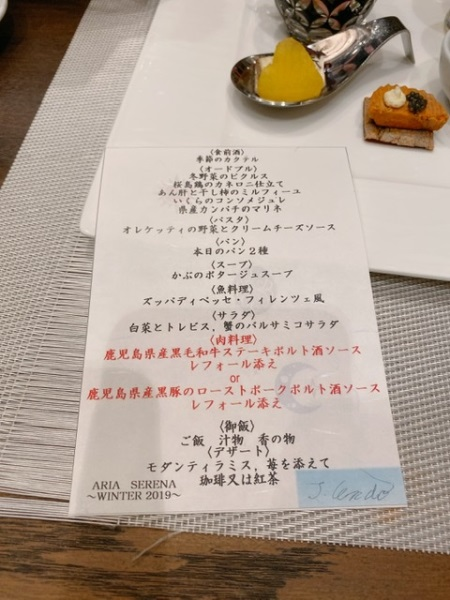 〈食前酒〉
季節のカクテル
〈オードブル〉
冬野菜のピクルス
桜島鶏のカネロニ仕立て
あん肝と干し柿のミルフィーユ
いくらのコンソメジュレ
県産カンパチのマリネ
〈パスタ〉
オレケッティの野菜とクリームチーズソース
〈パン〉
本日のパン２種
〈スープ〉
かぶのポタージュスープ
〈魚料理〉
ズッパディペッセ・フィレンツェ風
〈サラダ〉
白菜とトレビス，蟹のバルサミコサラダ
〈肉料理〉
鹿児島県産黒毛和牛ステーキポルト酒ソース
レフォール添え
or
鹿児島県産黒豚のローストポークポルト酒ソース
レフォール添え
〈御飯〉
ご飯　汁物　香の物
〈デザート〉
モダンティラミス，苺を添えて
珈琲又は紅茶
ARIA SERENA
～WINTER 2019～